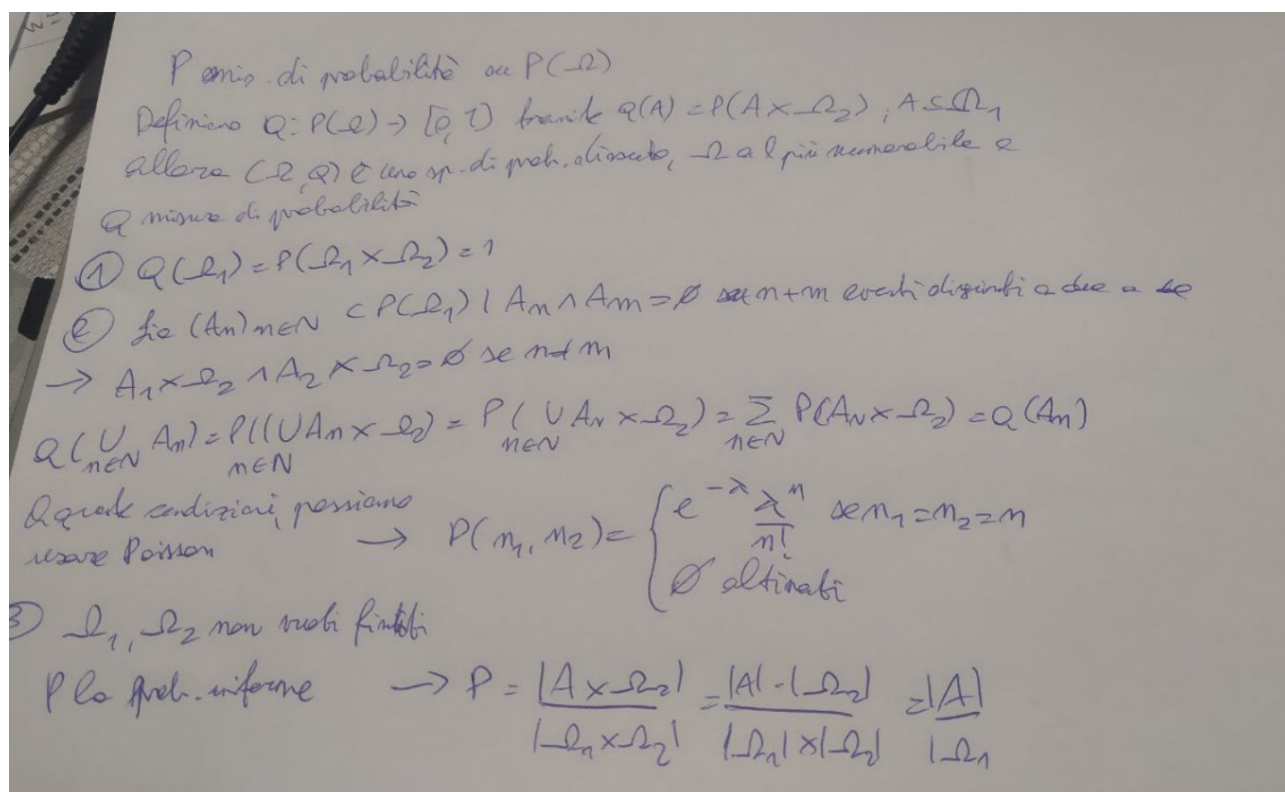 P mis. di probabilità su P(Ω)
Definiamo Q: P(Ω) → [0, 1] tramite Q(A) = P(A × Ω₂), A ⊆ Ω₁
allora (Ω, Q) è uno sp. di prob. discreto, Ω al più numerabile e
Q misura di probabilità
① Q(Ω₁) = P(Ω₁ × Ω₂) = 1
② Sia (An)n∈N ⊂ P(Ω₁) | An ∧ Am = ∅ se n≠m eventi disgiunti a due a
→ A₁ × Ω₂ ∧ A₂ × Ω₂ = ∅ se n≠m
Q(∪ An) = P((∪An × Ω₂) = P(∪ An × Ω₂) = Σ P(An × Ω₂) = Q(An)
n∈N n∈N n∈N n∈N
A quale condizioni, possiamo
usare Poisson → P(n₁, n₂) = { e^-λ λ^n / n! se n₁ = n₂ = n
∅ altrimenti
3) Ω₁, Ω₂ non vuoti finiti
P la prob. uniforme → P = |A × Ω₂| / |Ω₁ × Ω₂| = |A| · |Ω₂| / |Ω₁| × |Ω₂| = |A| / |Ω₁